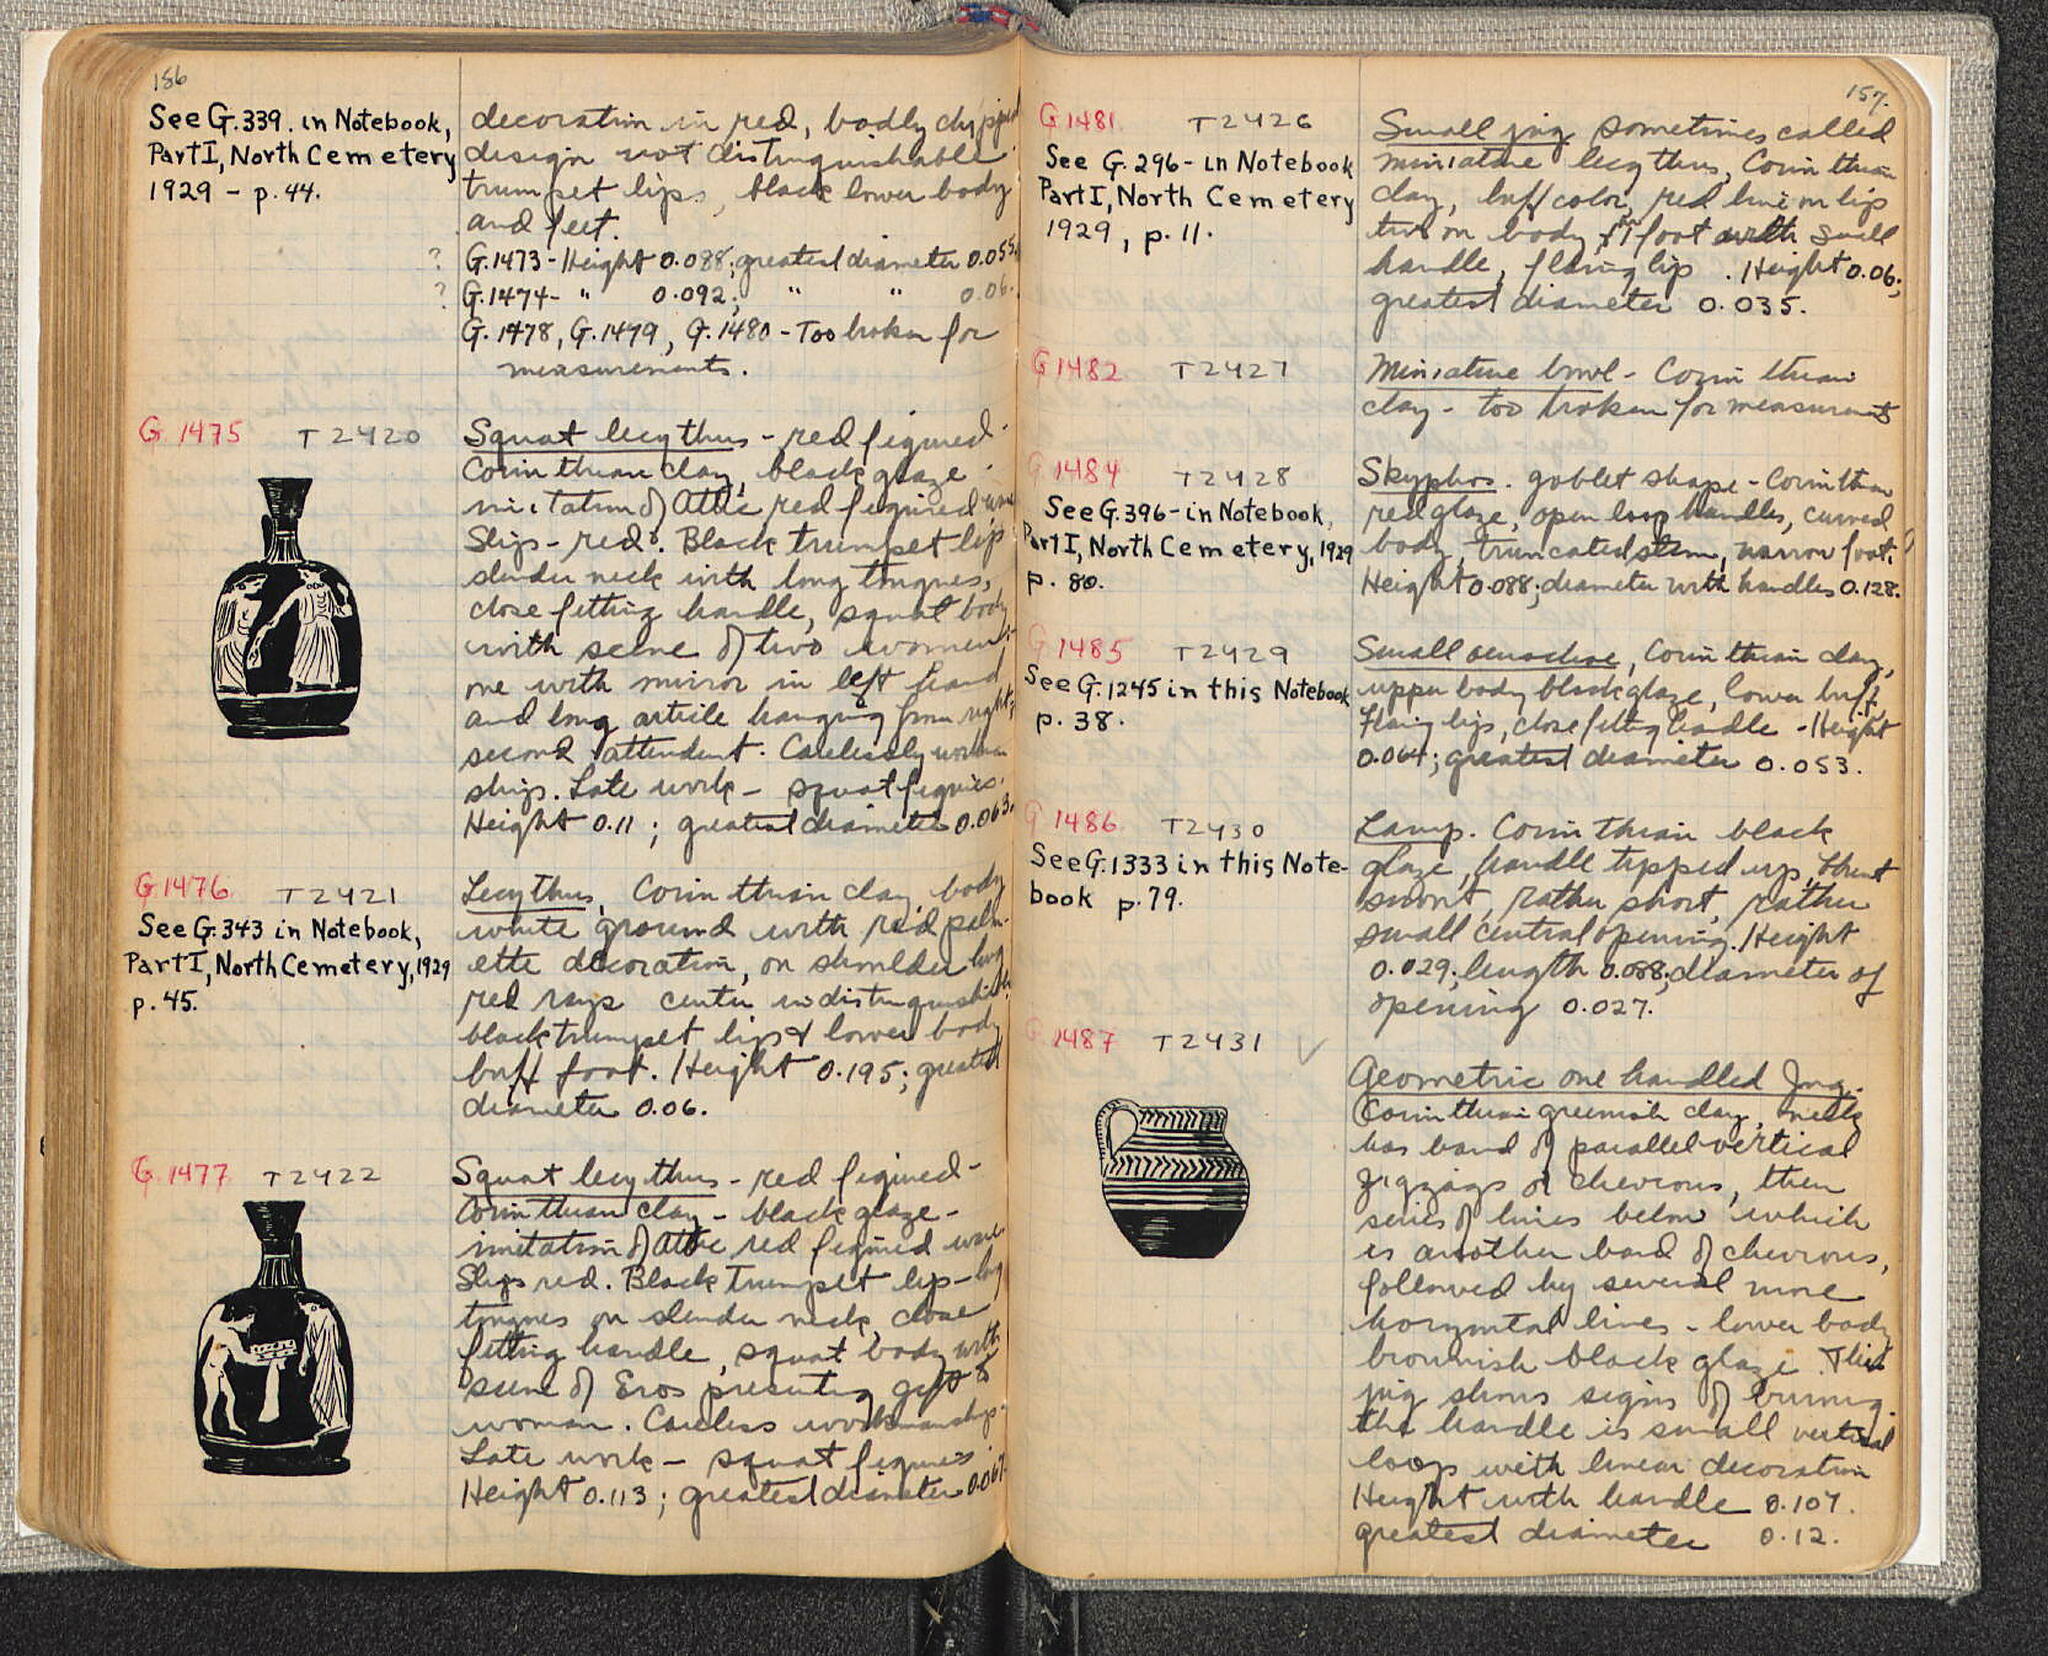 156
See G.339. in Notebook,
Part I, North Cemetery
1929 - p. 44.
decoration in red, badly chipped
design not distinguishable
trumpet lips, black lower body
and feet.
? G.1473 - Height 0.088; greatest diameter 0.055.
? G.1474 - " 0.092; " " 0.06.
G.1478, G.1479, G.1480 - Too broken for
measurements.
G 1475 T 2420
Squat lecythus - red figured -
Corinthian clay, black glaze -
imitation of Attic red figured ware
Slips - red. Black trumpet lip
slender neck with long tongues,
close fitting handle, squat body
with scene of two women;
one with mirror in left hand
and long article hanging from right;
second attendent. Carelessly workman
ship. Late work - squat figures.
Height 0.11; greatest diameter 0.063.
G.1476 T 2421
See G.343 in Notebook,
Part I, North Cemetery, 1929
p. 45.
Lecythus, Corinthian clay, body
white ground with red palm-
ette decoration, on shoulder long
red rays center indistinguishable
black trumpet lip & lower body
buff foot. Height 0.195; greatest
diameter 0.06.
G.1477 T 2422
Squat lecythus - red figured -
Corinthian clay - black glaze -
imitation of Attic red figured ware
Slips red. Black Trumpet lip - long
tongues on slender neck, close
fitting handle, squat body with
scene of Eros presenting gift to
woman. Careless workmanship.
Late work - squat figures.
Height 0.113; greatest diameter 0.067.
157.
G 1481 T 2426
See G.296 - in Notebook
Part I, North Cemetery
1929, p. 11.
Small jug sometimes called
miniature lecythus, Corinthian
clay, buff color, red line on lip
two on body, foot with small
handle, flaring lip. Height 0.06;
greatest diameter 0.035.
G 1482 T 2427
Miniature bowl - Corinthian
clay - too broken for measurements
G 1484 T 2428
See G.396 - in Notebook,
Part I, North Cemetery, 1929
p. 80.
Skyphos. goblet shape - Corinthian
red glaze, open loop handles, curved
body, truncated stem, narrow foot.
Height 0.088; diameter with handles 0.128.
G 1485 T 2429
See G.1245 in this Notebook
p. 38.
Small oenochoe, Corinthian clay,
upper body black glaze, lower buff,
Flaring lips, close fitting handle - Height
0.064; greatest diameter 0.053.
G 1486 T 2430
See G.1333 in this Note-
book p. 79.
Lamp. Corinthian black
glaze, handle tipped up, blunt
snout, rather short, rather
small central opening. Height
0.029; length 0.088; diameter of
opening 0.027.
G 1487 T 2431 ✓
Geometric one handled Jug.
Corinthian greenish clay, neck
has band of parallel vertical
zigzags or chevrons, then
series of lines below which
is another band of chevrons,
followed by several more
horyontal lines - lower body
brownish black glaze. This
jug shows signs of burning.
the handle is small vertical
loop with linear decoration
Height with handle 0.107.
greatest diameter 0.12.